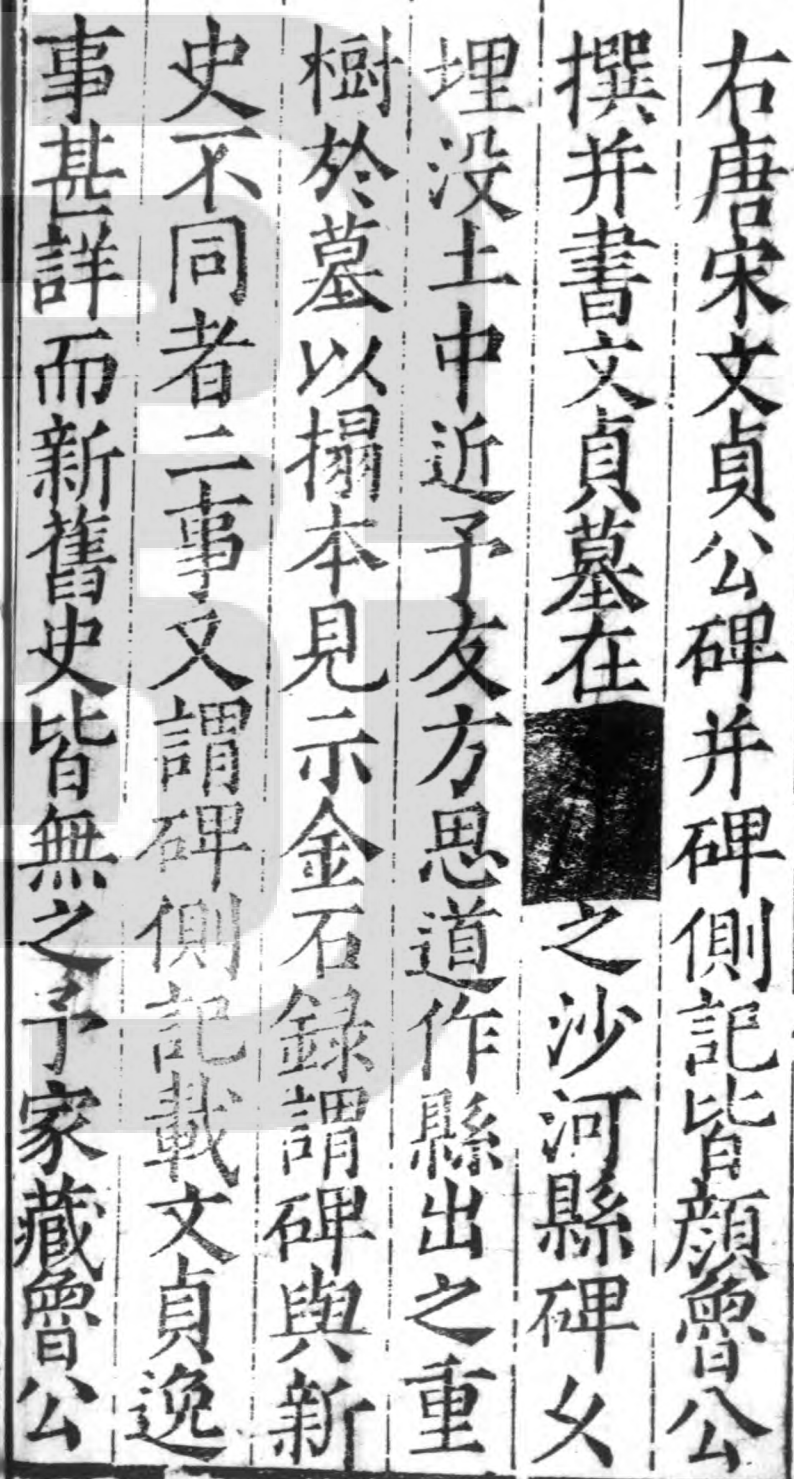 右唐宋文貞公碑并碑側記皆顔魯公
撰并書文貞墓在之沙河縣碑乆
埋没土中近予友方思道作縣出之重
樹於墓以搨本見示金石録謂碑與新
史不同者二事又謂碑側記載文貞逸
事甚詳而新舊史皆無之予家藏魯公